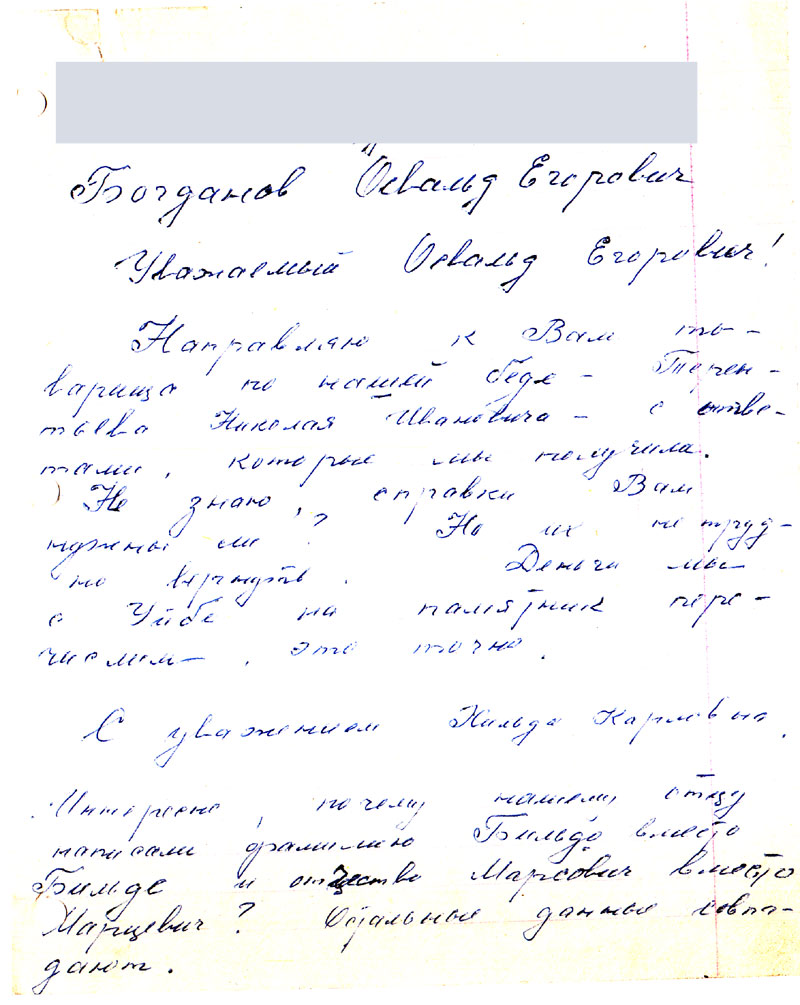 Богданов Освальд Егорович
Уважаемый Освальд Егорович!
Направляю к Вам то-
варища по нашей беде – Терен-
тьева Николая Ивановича – с отве-
тами, которые мы получили.
Не знаю, справки Вам
нужны ли? Но их не труд-
но вернуть. Деньги мы
с Уйбо на памятник пере-
числим –, это точно.
С уважением Хильда Карловна.
Интересно, почему нашему отцу
написали фамилию Бильдо вместо
Бильде и отчество Марсович вместо
Марцевич? Остальные данные совпа-
дают.